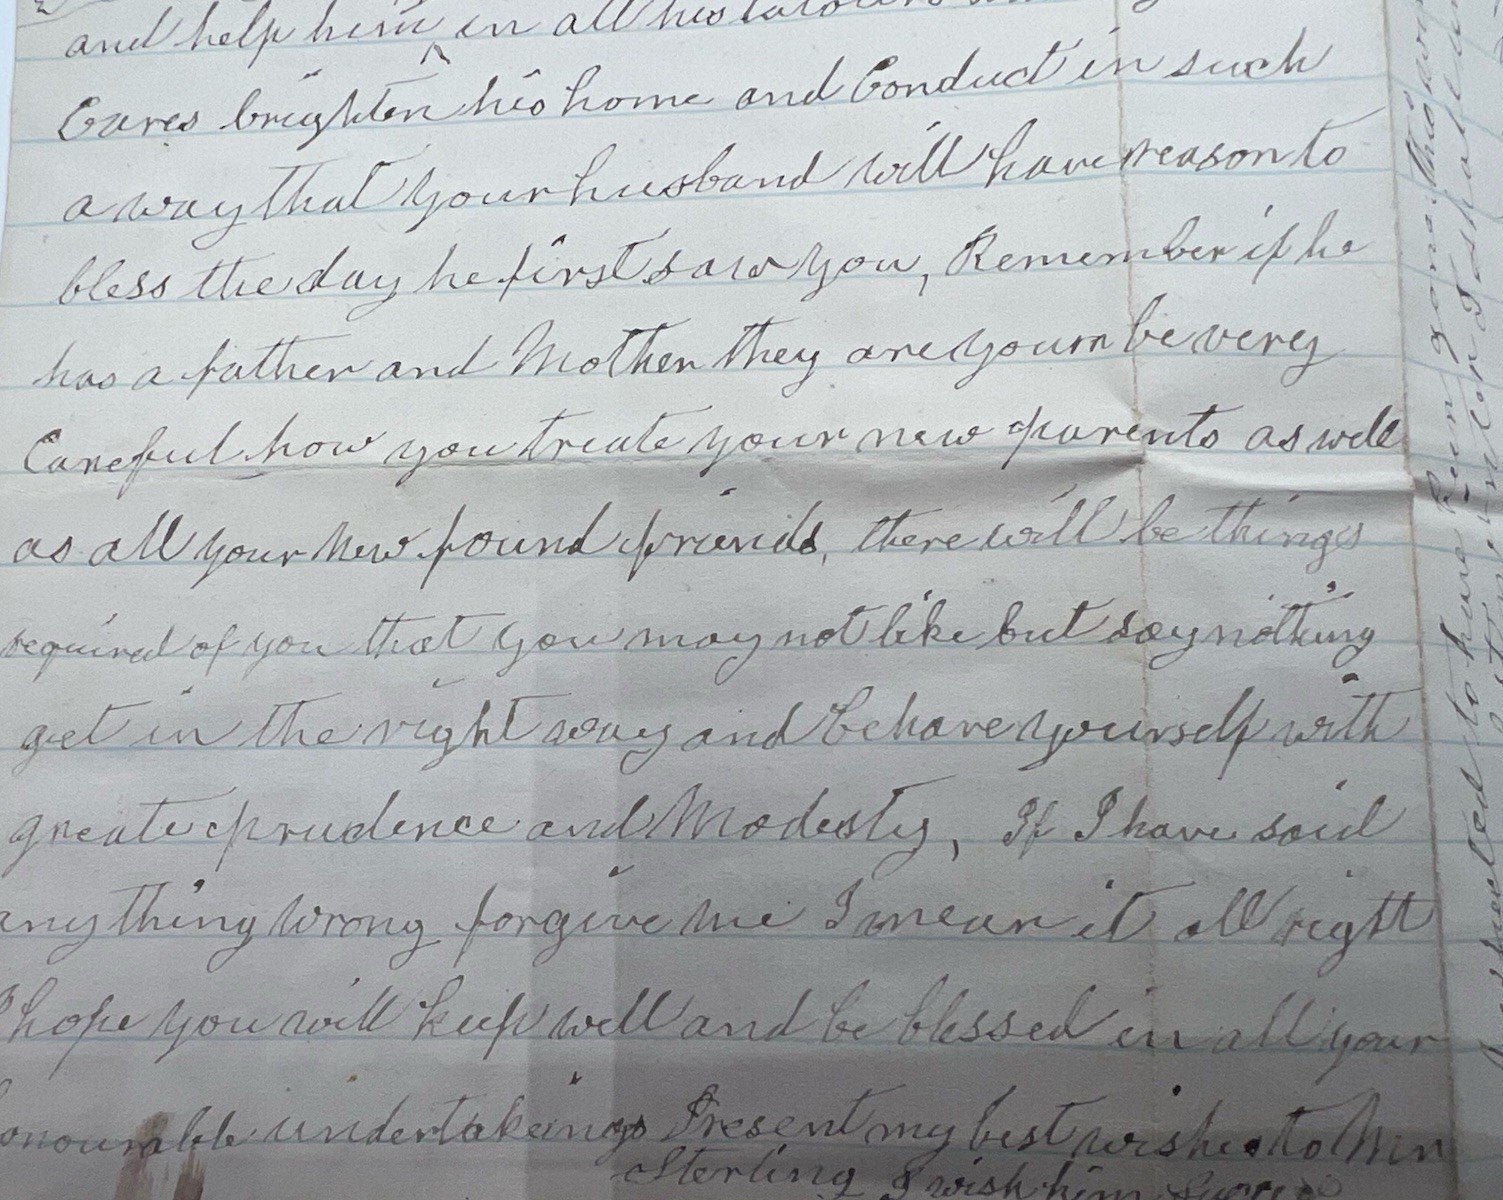 and help him in all his labours
Cares brighten his home and Conduct in such
a way that your husband will have reason to
bless the day he first saw you, Remember if he
has a father and Mother they are your be verey
Careful how you treate your new parents as well
as all your new found friends, there will be things
required of you that you may not like but say nothing
get in the right way and behave yourself with
greate prudence and Modesty, If I have said
anything wrong forgive me I mean it all right
I hope you will keep well and be blessed in all your
honourable undertakeings Present my best wishes to Mr
Sterling I wish him
expected to have been gone this